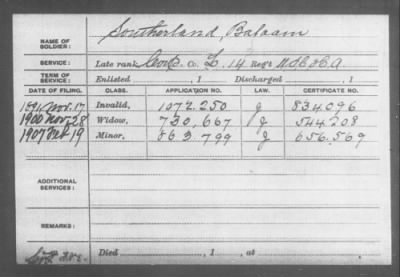 NAME OF SOLDIER: Southerland, Balaam
SERVICE: Late rank, Corp. Co. L, 14 Reg't U.S.C.H.A.
TERM OF SERVICE: Enlisted , 1 Discharged , 1
DATE OF FILING. CLASS. APPLICATION NO. LAW. CERTIFICATE NO.
1891 Nov. 17 Invalid, 1072.250 J 834096
1900 Nov. 28 Widow, 730,667 J 544208
1907 19 Minor, 863 799 J 656.569
ADDITIONAL SERVICES:
REMARKS:
Died , 1 , at